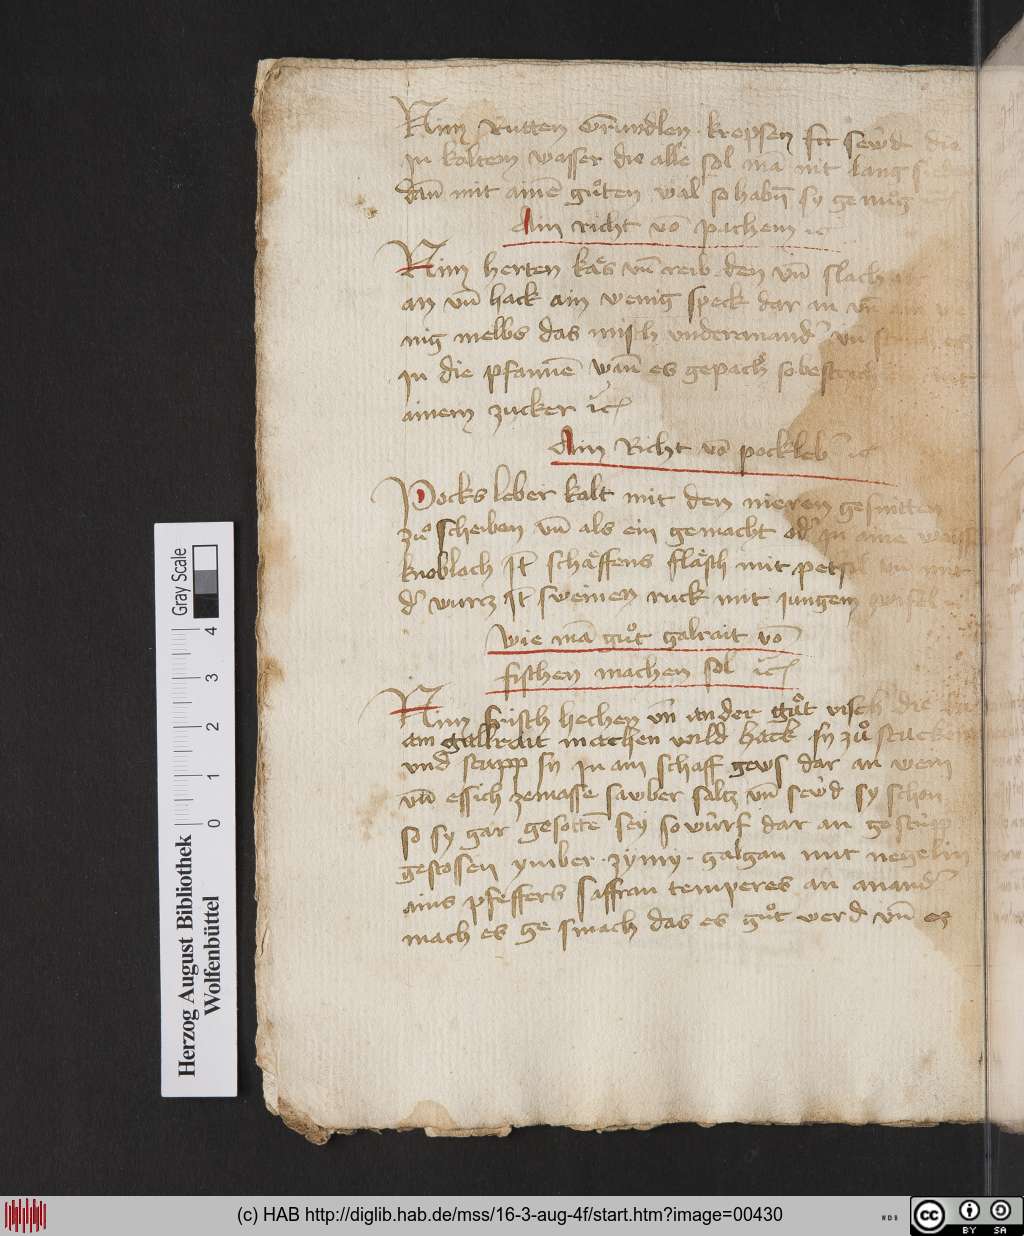 Nim Rutten Grundlen · krepsen fct sewd die
In kaltem wasser die alle sol mā nit lang sieden
dañ mit ainē gůten wal so habñ sy genůg ꝛc
Ain richt vō pachem ꝛc
Nim herten käs vñ reib den vñ slach
an vñ hack ain wenig speck dar an vñ
nig melbs das misch vnderanand' vñ
In die pfannē wañ es gepachn so bestreich
ainem zucker ꝛc
Ain Richt vō pockleb' ꝛc
Pocks leber kalt mit den nieren gesnitten
zů scheiben vñ als ein gemacht od' In aine
knobloch It schäffens fläsch mit petersil vñ mit
d' wurcz It sweinen ruck mit jungem
wie mā gůt galrait vō
fischen machen sol ꝛc
Nim frisch hechen vñ ander gůt visch die
am gallrait machen wild hack sy zů stucken
vnd seupp sy In ain schaff gews dar an wein
vñ essich zemasse sawber saltz vñ sewd sy schon
so sy gar gesottē sey so würf dar an gestüpp
gestosen ymber · zymy · galgan mit negelin
ains pfeffers saffran temperes an anand'
mach es gesmach das es gůt werd vñ ez
Gray Scale
4
3
2
1
0
Herzog August Bibliothek
Wolfenbüttel
(c) HAB http://diglib.hab.de/mss/16-3-aug-4f/start.htm?image=00430
WDB
cc
BY SA